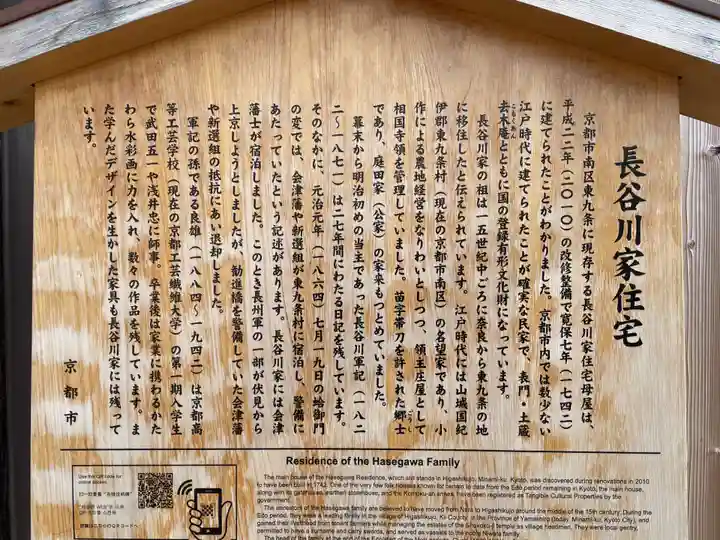 長谷川家住宅
京都市南区東九条に現存する長谷川家住宅母屋は、
平成二二年(二〇一〇)の改修整備で寛保七年(一七四二)
に建てられたことがわかりました。京都市内では数少ない
江戸時代に建てられたことが確実な民家で、表門・土蔵
去木庵とともに国の登録有形文化財になっています。
長谷川家の祖は一五世紀中ごろに奈良から東九条の地
に移住したと伝えられています。江戸時代には山城国紀
伊郡東九条村(現在の京都市南区)の名望家であり、小
作による農地経営をなりわいとしつつ、領主庄屋として
相国寺領を管理していました。苗字帯刀を許された郷士
であり、庭田家(公家)の家来もつとめていました。
幕末から明治初めの当主であった長谷川軍記(一八二
二〜一八七一)は二七年間にわたる日記を残しています。
そのなかに、元治元年(一八六四)七月一九日の蛤御門
の変では、会津藩や新選組が東九条村に宿泊し、警備に
あたっていたという記述があります。長谷川家には会津
藩士が宿泊しました。このとき長州軍の一部が伏見から
上京しようとしましたが、勧進橋を警備していた会津藩
や新選組の抵抗にあい退却しました。
軍記の孫である良雄(一八八四〜一九四二)は京都高
等工芸学校(現在の京都工芸繊維大学)の第一期入学生
で武田五一や浅井忠に師事。卒業後は家業に携わるかた
わら水彩画に力を入れ、数々の作品を残しています。ま
た学んだデザインを生かした家具も長谷川家には残って
います。
京都市
Residence of the Hasegawa Family
The main house of the Hasegawa Residence, which still stands in Higashikujo, Minami-ku, Kyoto, was discovered during renovations in 2010
to have been built in 1742. One of the very few folk houses known for certain to date from the Edo period remaining in Kyoto, the main house,
along with its gatehouse, earthen storehouse, and the Koroku-an annex, have been registered as Tangible Cultural Properties by the
government.
The ancestors of the Hasegawa family are believed to have moved from Nara to Higashikujo around the middle of the 15th century. During the
Edo period, they were a leading family in the village of Higashikujo, Kii County, in the Province of Yamashiro (today, Minami-ku, Kyoto City), and
gained their livelihood from tenant farmers while managing the estates of the Shokoku-ji temple as village headmen. They were local gentry,
permitted to have a surname and carry swords, and served as vassals to the noble Niwata family.